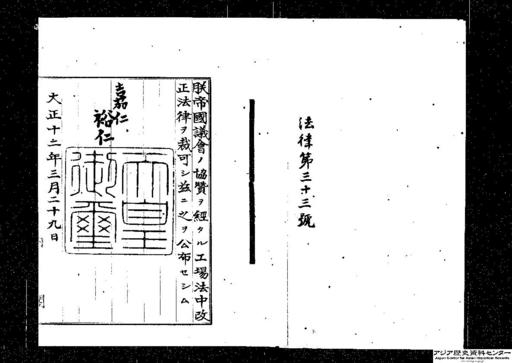 法律第三十三號
朕帝國議會ノ協贊ヲ經タル工場法中改
正法律ヲ裁可シ茲ニ之ヲ公布セシム
嘉仁
裕仁
天皇
御璽
大正十二年三月二十九日
アジア歴史資料センター
Japan Center for Asian Historical Records